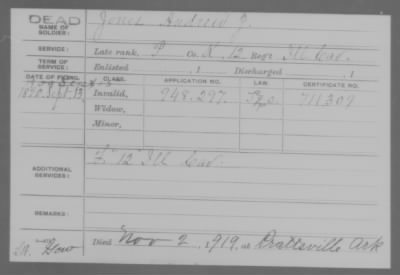 DEAD
NAME OF SOLDIER: Jones Andrew J.
SERVICE: Late rank, P Co. K, 12 Reg't Ill Cav.
TERM OF SERVICE: Enlisted , 1 Discharged , 1
DATE OF FILING. CLASS. APPLICATION NO. LAW. CERTIFICATE NO.
1890 Sept 13 Invalid, 948.297. 711309
Widow,
Minor,
ADDITIONAL SERVICES: F. 12 Ill Cav
REMARKS:
Died Nov 2, 1919, at Prattsville Ark